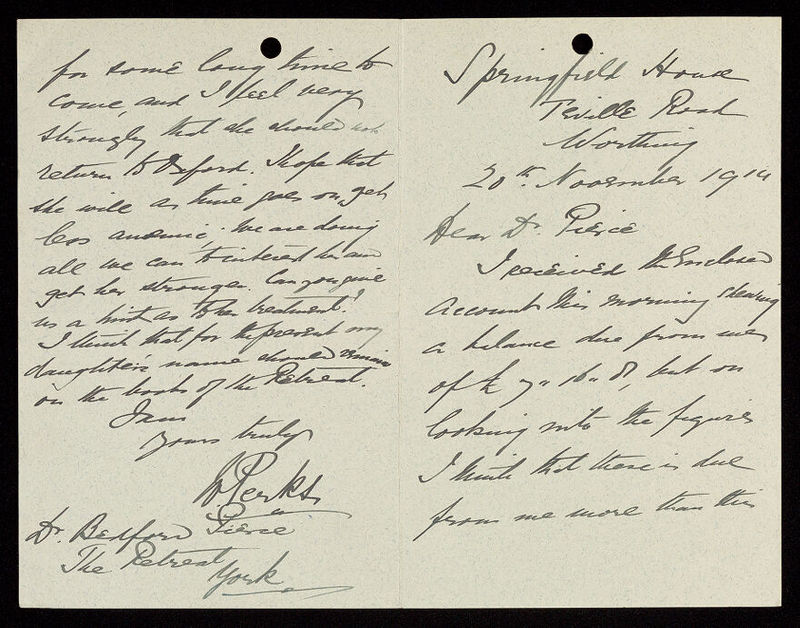 Springfield House
Teville Road
Worthing
20th. November 1914
Dear Dr. Pierce
I received the Enclosed
account this morning shewing
a balance due from me
of £ 7 " 16 " 8, but on
looking into the figures
I think that there is due
from me more than this
for some long time to
come, and I feel very
strongly that she should not
return to Oxford. I hope that
she will as time goes on, get
less anæmic. We are doing
all we can to interest her and
get her stronger. Can you give
us a hint as to her treatment?
I think that for the present my
daughter's name should remain
on the books of the Retreat.
I am
Yours truly
Perks
Dr. Bedford Pierce
The Retreat
York